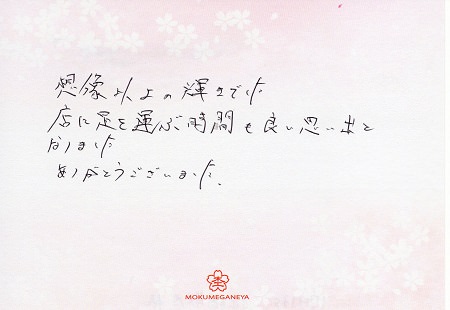 想像以上の輝きでした
店に足を運ぶ時間も良い思い出と
なりました
ありがとうございました.
MOKUMEGANEYA